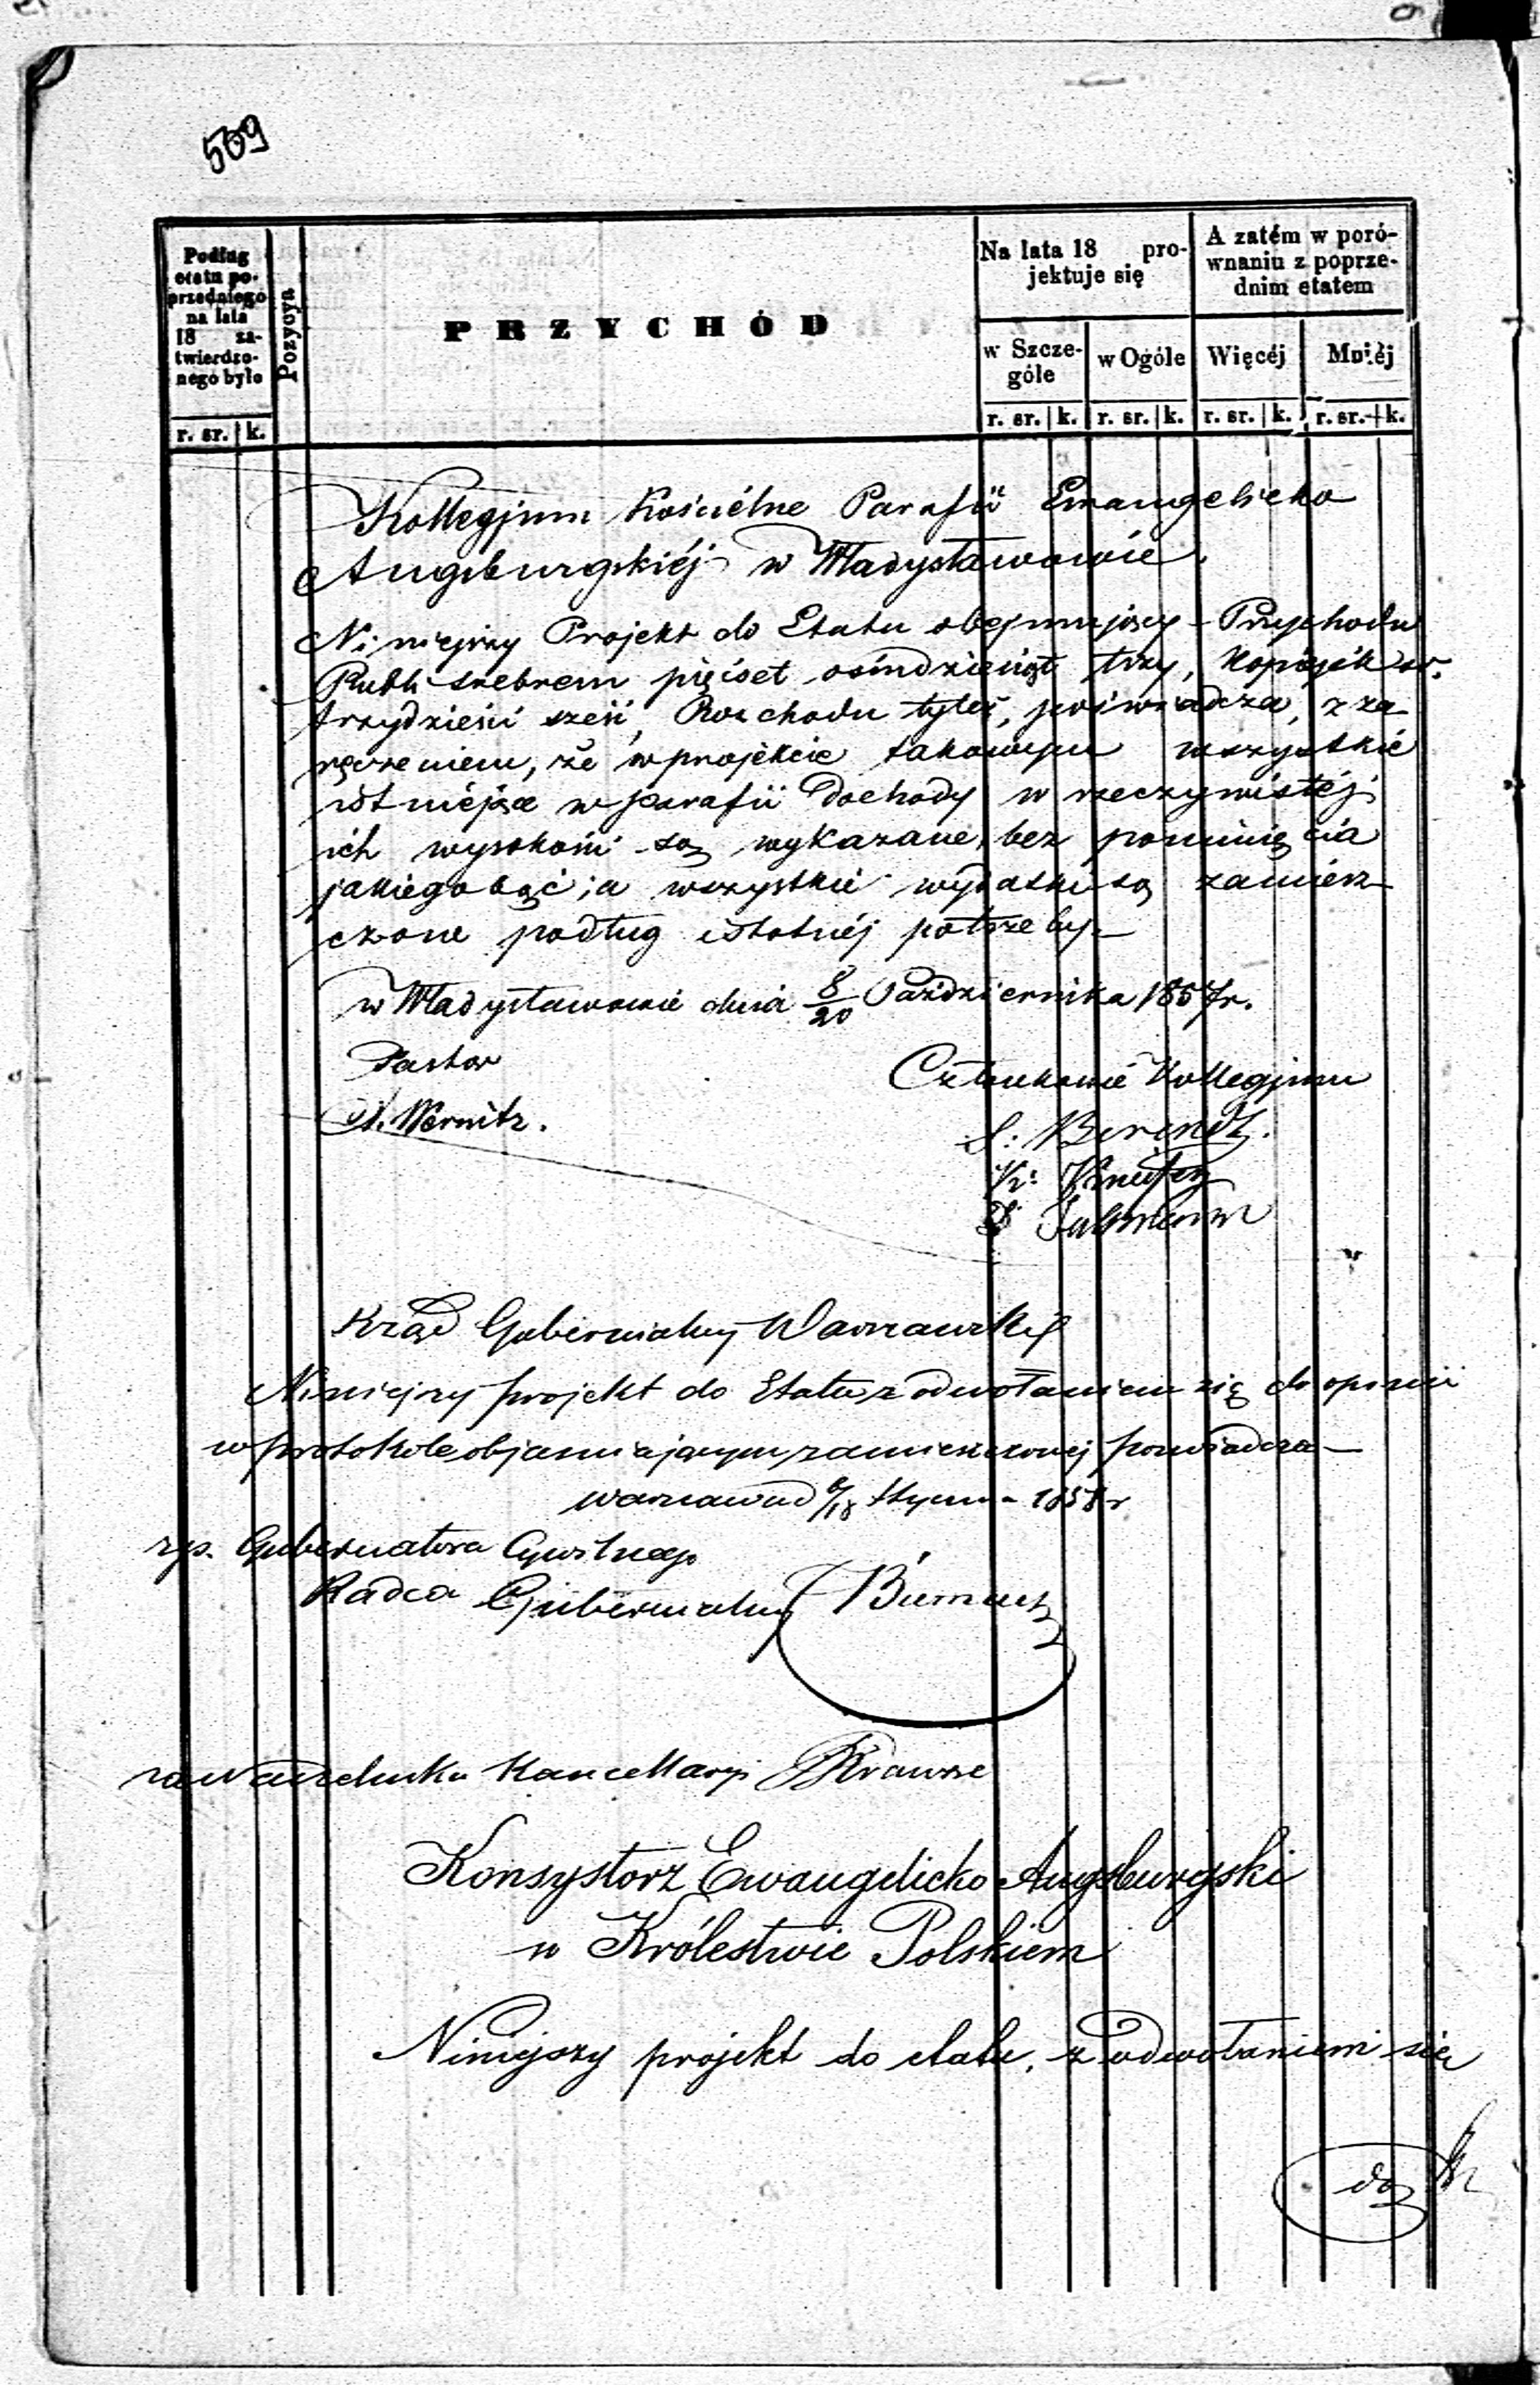 509
Podług
etatu po-
przedniego
na lata
18 za-
twierdzo-
nego było
r. sr. k.
Pozycya
PRZYCHÓD
Na lata 18 pro-
jektuje się
w Szcze-
góle
r. sr. k.
w Ogóle
r. sr. k.
A zatém w poró-
wnaniu z poprze-
dnim etatem
Więcéj
r. sr. k.
Mniéj
r. sr. k.
Kollegjum Kościelne Parafii Ewangelicko
Augsburgskiéj w Władysławowie.
Niniejszy Projekt do Etatu obejmujący Przychodu
Rubli srebrem pięćset ośmdziesiąt trzy, kopiejek sr.
trzydzieści sześć, Rozchodu tyleż, poświadcza, z za
ręczeniem, że w projekcie takowym wszystkie
istniejące w parafii Dochody w rzeczywistéj
ich wysokości są wykazane, bez pominięcia
jakiegobąć; a wszystkie wydatki są zamiesz-
czone podług istotnéj potrzeby.
w Władysławowie dnia 8/20 Października 1857 r.
Pastor
Członkowie Kollegjum
A. Wernitz.
S: Berendt.
K:
Rząd Gubernialny Warszawski
Niniejszy projekt do Etatu z odwołaniem się do opinii
w protokole objasniającym zamieszczonej poswiadcza
Warszawa d 6/18 Styczn. 1858 r
zp. Gubernatora Cywilnego
Radca Gubernialny
za Naczelnika Kancellaryi Krauze
Konsystorz Ewangelicko Augsburgski
w Królestwie Polskiem
Niniejszy projekt do etatu, z odwołaniem się
do